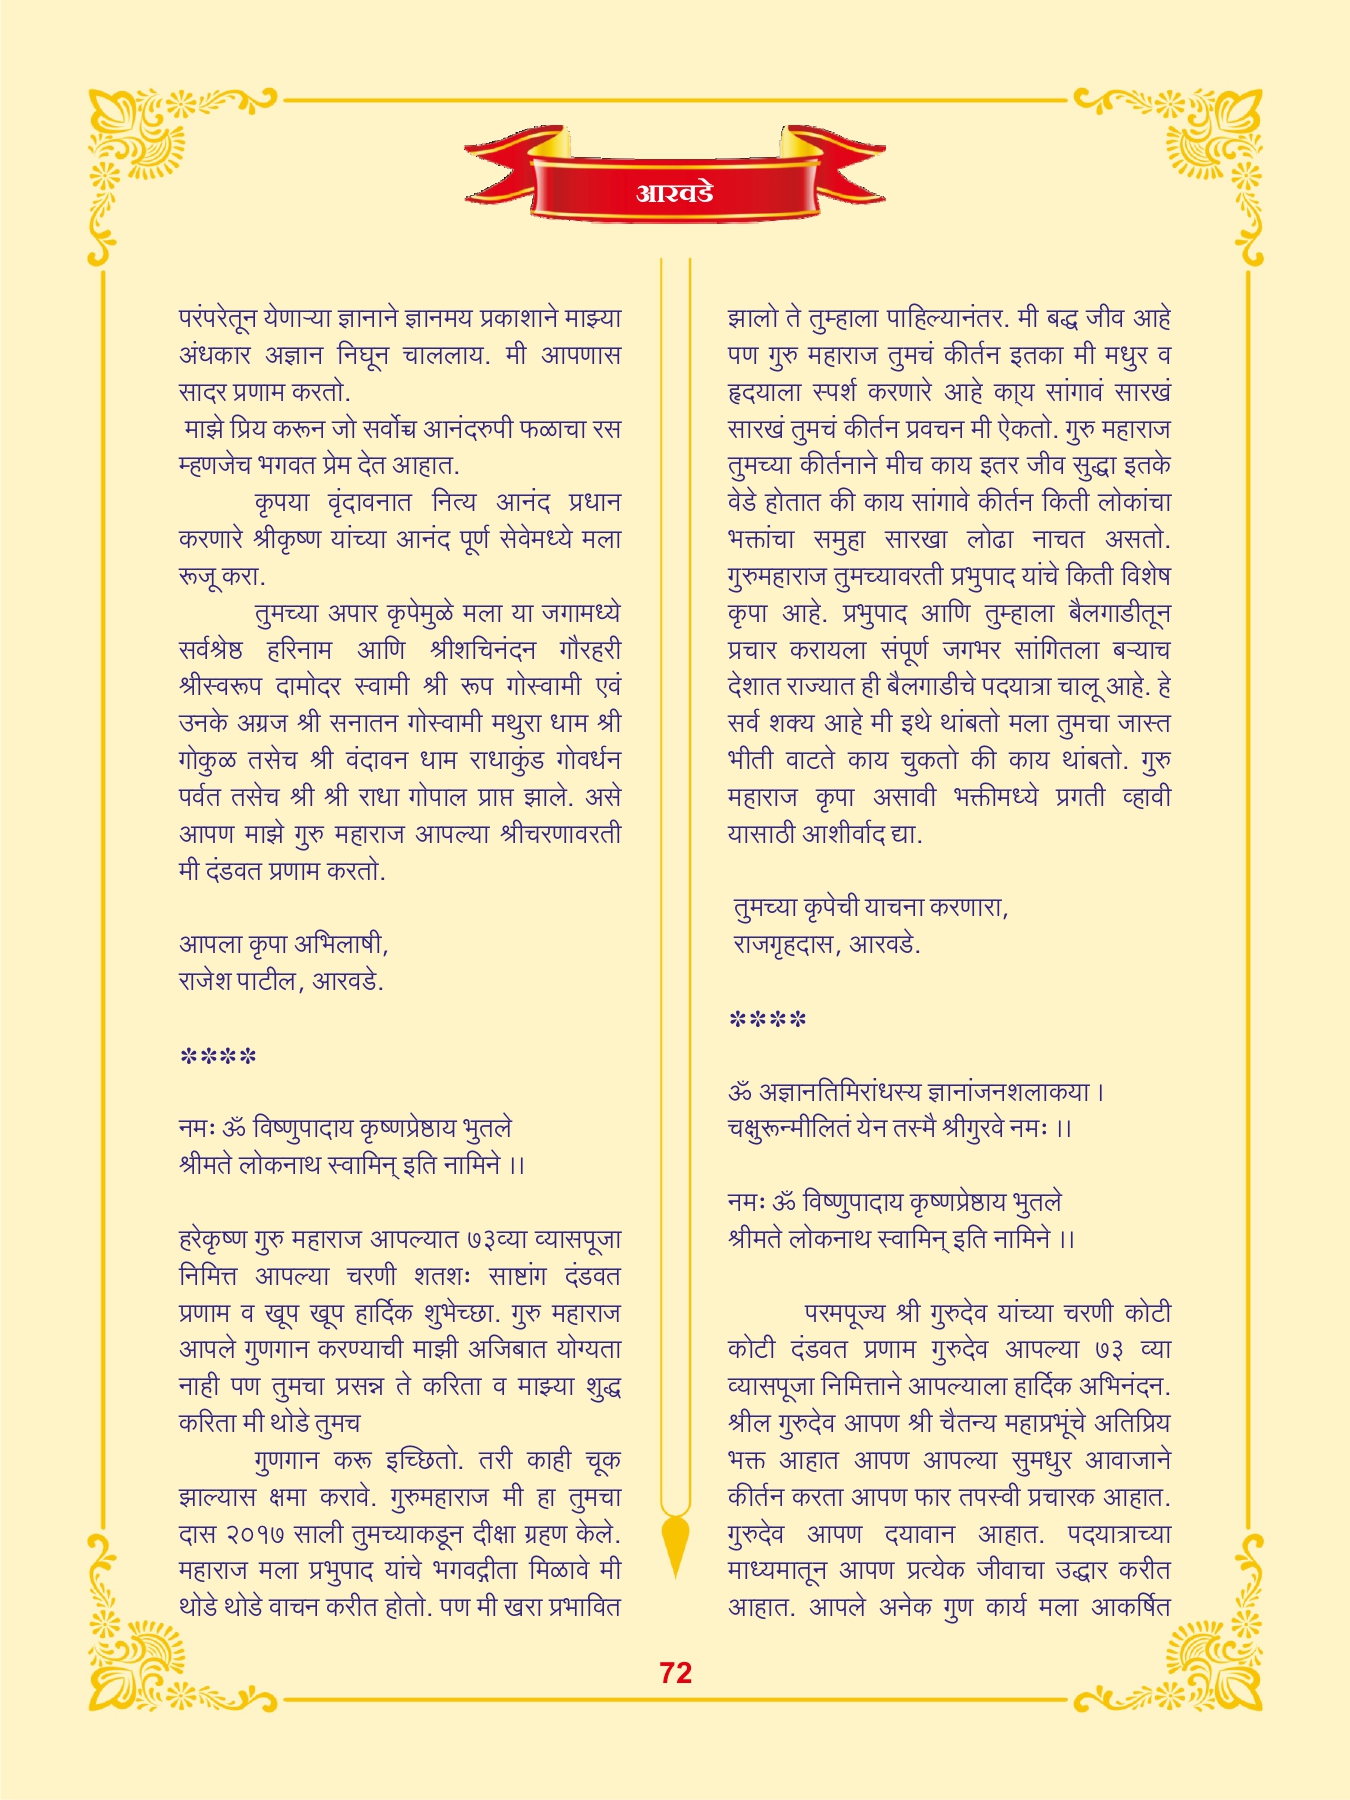 आरवडे
परंपरेतून येणाऱ्या ज्ञानाने ज्ञानमय प्रकाशाने माझ्या
अंधकार अज्ञान निघून चाललाय. मी आपणास
सादर प्रणाम करतो.
माझे प्रिय करून जो सर्वोच्च आनंदरुपी फळाचा रस
म्हणजेच भगवत प्रेम देत आहात.
कृपया वृंदावनात नित्य आनंद प्रधान
करणारे श्रीकृष्ण यांच्या आनंद पूर्ण सेवेमध्ये मला
रूजू करा.
तुमच्या अपार कृपेमुळे मला या जगामध्ये
सर्वश्रेष्ठ हरिनाम आणि श्रीशचिनंदन गौरहरी
श्रीस्वरूप दामोदर स्वामी श्री रूप गोस्वामी एवं
उनके अग्रज श्री सनातन गोस्वामी मथुरा धाम श्री
गोकुळ तसेच श्री वंदावन धाम राधाकुंड गोवर्धन
पर्वत तसेच श्री श्री राधा गोपाल प्राप्त झाले. असे
आपण माझे गुरु महाराज आपल्या श्रीचरणावरती
मी दंडवत प्रणाम करतो.
आपला कृपा अभिलाषी,
राजेश पाटील, आरवडे.
****
नमः ॐ विष्णुपादाय कृष्णप्रेष्ठाय भुतले
श्रीमते लोकनाथ स्वामिन् इति नामिने ।।
हरेकृष्ण गुरु महाराज आपल्यात ७३व्या व्यासपूजा
निमित्त आपल्या चरणी शतशः साष्टांग दंडवत
प्रणाम व खूप खूप हार्दिक शुभेच्छा. गुरु महाराज
आपले गुणगान करण्याची माझी अजिबात योग्यता
नाही पण तुमचा प्रसन्न ते करिता व माझ्या शुद्ध
करिता मी थोडे तुमच
गुणगान करू इच्छितो. तरी काही चूक
झाल्यास क्षमा करावे. गुरुमहाराज मी हा तुमचा
दास २०१७ साली तुमच्याकडून दीक्षा ग्रहण केले.
महाराज मला प्रभुपाद यांचे भगवद्गीता मिळावे मी
थोडे थोडे वाचन करीत होतो. पण मी खरा प्रभावित
झालो ते तुम्हाला पाहिल्यानंतर. मी बद्ध जीव आहे
पण गुरु महाराज तुमचं कीर्तन इतका मी मधुर व
हृदयाला स्पर्श करणारे आहे का्य सांगावं सारखं
सारखं तुमचं कीर्तन प्रवचन मी ऐकतो. गुरु महाराज
तुमच्या कीर्तनाने मीच काय इतर जीव सुद्धा इतके
वेडे होतात की काय सांगावे कीर्तन किती लोकांचा
भक्तांचा समुहा सारखा लोढा नाचत असतो.
गुरुमहाराज तुमच्यावरती प्रभुपाद यांचे किती विशेष
कृपा आहे. प्रभुपाद आणि तुम्हाला बैलगाडीतून
प्रचार करायला संपूर्ण जगभर सांगितला बऱ्याच
देशात राज्यात ही बैलगाडीचे पदयात्रा चालू आहे. हे
सर्व शक्य आहे मी इथे थांबतो मला तुमचा जास्त
भीती वाटते काय चुकतो की काय थांबतो. गुरु
महाराज कृपा असावी भक्तीमध्ये प्रगती व्हावी
यासाठी आशीर्वाद द्या.
तुमच्या कृपेची याचना करणारा,
राजगृहदास, आरवडे.
****
ॐ अज्ञानतिमिरांधस्य ज्ञानांजनशलाकया ।
चक्षुरून्मीलितं येन तस्मै श्रीगुरवे नमः ।।
नमः ॐ विष्णुपादाय कृष्णप्रेष्ठाय भुतले
श्रीमते लोकनाथ स्वामिन् इति नामिने ।।
परमपूज्य श्री गुरुदेव यांच्या चरणी कोटी
कोटी दंडवत प्रणाम गुरुदेव आपल्या ७३ व्या
व्यासपूजा निमित्ताने आपल्याला हार्दिक अभिनंदन.
श्रील गुरुदेव आपण श्री चैतन्य महाप्रभूंचे अतिप्रिय
भक्त आहात आपण आपल्या सुमधुर आवाजाने
कीर्तन करता आपण फार तपस्वी प्रचारक आहात.
गुरुदेव आपण दयावान आहात. पदयात्राच्या
माध्यमातून आपण प्रत्येक जीवाचा उद्धार करीत
आहात. आपले अनेक गुण कार्य मला आकर्षित
72